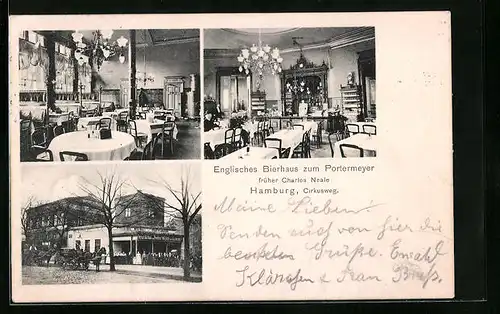 Englisches Bierhaus zum Portermeyer
früher Charles Neale
Hamburg, Cirkusweg.
Meine Lieben!
Senden auch von hier die
besten Grüße. Ewald
Klärchen & Frau